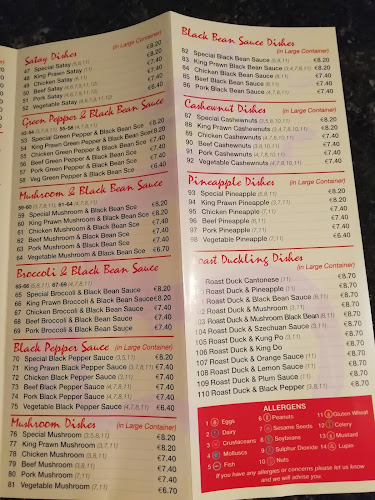 Satay Dishes (in Large Container)
47 Special Satay (3,5,8,11) €8.20
48 King Prawn Satay €8.20
49 Chicken Satay €7.40
50 Beef Satay €7.40
51 Pork Satay €7.40
52 Vegetable Satay €6.70
Green Pepper & Black Bean Sauce
53 Special Green Pepper & Black Bean Sce €8.20
54 King Prawn Green Pepper & Black Bean Sce €8.20
55 Chicken Green Pepper & Black Bean Sce €7.40
56 Beef Green Pepper & Black Bean Sce €7.40
57 Pork Green Pepper & Black Bean Sce €7.40
58 Veg Green Pepper & Black Bean Sce €6.70
Mushroom & Black Bean Sauce
59-60 (3,7,8,11) 61-64 (4,7,8,11)
59 Special Mushroom & Black Bean Sce €8.20
60 King Prawn Mushroom & Black Bean Sce €8.20
61 Chicken Mushroom & Black Bean Sce €7.40
62 Beef Mushroom & Black Bean Sce €7.40
63 Pork Mushroom & Black Bean Sce €7.40
64 Mushroom & Black Bean Sce €6.70
Broccoli & Black Bean Sauce
65-66 (5,8,11) 67-69 (4,7,8,11)
65 Special Broccoli & Black Bean Sauce €8.20
66 King Prawn Broccoli & Black Bean Sauce €8.20
67 Chicken Broccoli & Black Bean Sauce €7.40
68 Beef Broccoli & Black Bean Sauce €7.40
69 Pork Broccoli & Black Bean Sauce €7.40
Black Pepper Sauce (in Large Container)
70 Special Black Pepper Sauce (3,5,11) €8.20
71 King Prawn Black Pepper Sauce (3,4,7,8,11) €8.20
72 Chicken Black Pepper Sauce (3,11) €7.40
73 Beef Black Pepper Sauce (4,7,8,11) €7.40
74 Pork Black Pepper Sauce (4,7,8,11) €7.40
75 Vegetable Black Pepper Sauce (4,7,8,11) €6.40
Mushroom Dishes (in Large Container)
76 Special Mushroom (3,5,8,11) €8.20
77 King Prawn Mushroom (3,7,11) €8.20
78 Chicken Mushroom (3,8,11) €7.40
79 Beef Mushroom (3,8,11) €7.40
80 Pork Mushroom (7,11) €7.40
81 Vegetable Mushroom (7,11) €6.70
Black Bean Sauce Dishes
(in Large Container)
82 Special Black Bean Sauce (5,8,11) €8.20
83 King Prawn Black Bean Sauce (3,4,7,8,11) €8.20
84 Chicken Black Bean Sauce (8,11) €7.40
85 Beef Black Bean Sauce €7.40
86 Pork Black Bean Sauce (4,7,8,11) €7.40
Cashewnut Dishes (in Large Container)
87 Special Cashewnuts (3,5,8,10,11) €8.20
88 King Prawn Cashewnuts (3,4,7,8,10,11) €8.20
89 Chicken Cashewnuts €7.40
90 Beef Cashewnuts (3,8,10,11) €7.40
91 Pork Cashewnuts (4,7,8,10,11) €7.40
92 Vegetable Cashewnuts (4,7,8,10,11) €7.40
Pineapple Dishes (in Large Container)
93 Special Pineapple (5,8,11) €8.20
94 King Prawn Pineapple (3,7,11) €8.20
95 Chicken Pineapple (7,11) €7.40
96 Beef Pineapple (8,11) €7.40
97 Pork Pineapple (7,11) €7.40
98 Vegetable Pineapple (7,11) €7.40
oast Duckling Dishes
(in Large Container)
Roast Duck Cantonese (11) €8.70
Roast Duck & Pineapple (11) €8.70
Roast Duck & Black Bean Sauce (8,11) €8.70
Roast Duck & Mushroom (11) €8.70
Roast Duck & Mushroom Black Bean (8,11) €8.70
Roast Duck & Szechuan Sauce (11) €8.70
Roast Duck & Kung Po (11) €8.70
Roast Duck & King Do €8.70
107 Roast Duck & Orange Sauce (11) €8.70
108 Roast Duck & Lemon Sauce (11) €8.70
109 Roast Duck & Plum Sauce (11) €8.70
110 Roast Duck & Black Pepper (3,8,11) €8.70
ALLERGENS
1 Eggs 6 Peanuts 11 Gluten Wheat
2 Dairy 7 Sesame Seeds 12 Celery
3 Crustaceans 8 Soybeans 13 Mustard
4 Molluscs 9 Sulphur Dioxide 14 Lupas
5 Fish 10 Nuts
If you have any allergies or concerns please let us know
and we will advise you